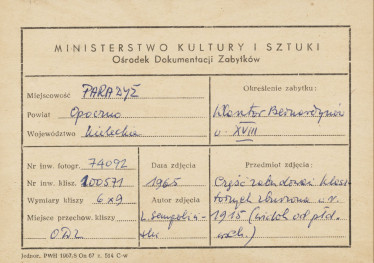 MINISTERSTWO KULTURY I SZTUKI
Ośrodek Dokumentacji Zabytków
Miejscowość PARADYŻ
Powiat Opoczno
Województwo kieleckie
Określenie zabytku:
Klasztor Bernardynów
w XVIII
Nr inw. fotogr. 74092
Nr inw. klisz. 100571
Wymiary kliszy 6x9
Miejsce przechow. kliszy
ODZ
Data zdjęcia
1965
Autor zdjęcia
Przedmiot zdjęcia:
Część zabudowań klasz
tornych zburzona w r.
1915 (widok od płd.
wsch.)
Jednor. PWH 1067.8 Oa 67 r. 154 C-w